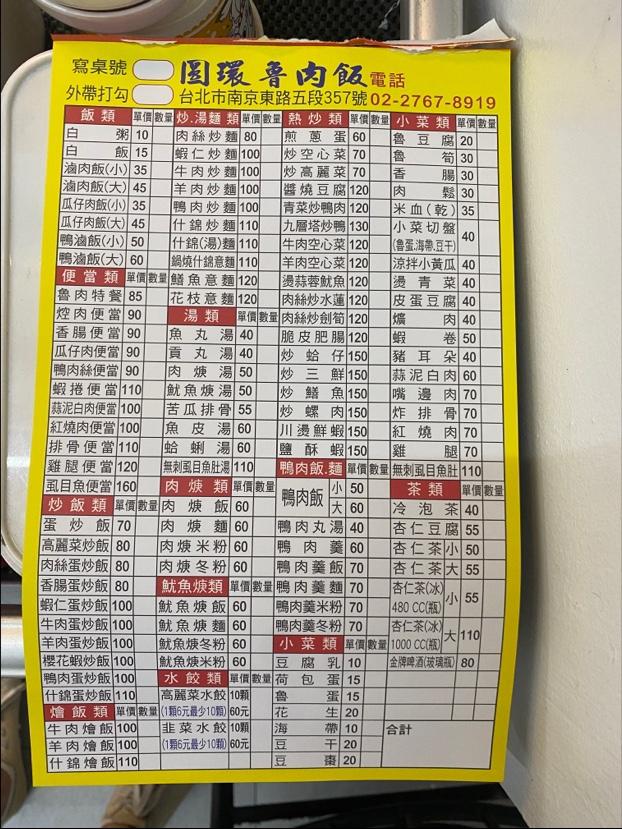 寫桌號
圓環魯肉飯 電話
外帶打勾
台北市南京東路五段357號 02-2767-8919
飯類 單價 數量
白粥 10
白飯 15
滷肉飯(小) 35
滷肉飯(大) 45
瓜仔肉飯(小) 35
瓜仔肉飯(大) 45
鴨滷飯(小) 50
鴨滷飯(大) 60
便當類 單價 數量
魯肉特餐 85
焢肉便當 90
香腸便當 90
瓜仔肉便當 90
鴨肉絲便當 90
蝦捲便當 110
蒜泥白肉便當 100
紅燒肉便當 100
排骨便當 110
雞腿便當 120
虱目魚便當 160
炒飯類 單價 數量
蛋炒飯 70
高麗菜炒飯 80
肉絲蛋炒飯 80
香腸蛋炒飯 80
蝦仁蛋炒飯 100
牛肉蛋炒飯 100
羊肉蛋炒飯 100
櫻花蝦炒飯 100
鴨肉蛋炒飯 100
什錦蛋炒飯 110
燴飯類 單價 數量
牛肉燴飯 100
羊肉燴飯 100
什錦燴飯 110
炒.湯麵類 單價 數量
肉絲炒麵 80
蝦仁炒麵 100
牛肉炒麵 100
羊肉炒麵 100
鴨肉炒麵 100
什錦炒麵 110
什錦(湯)麵 110
鍋燒什錦意麵 110
鱔魚意麵 120
花枝意麵 120
湯類 單價 數量
魚丸湯 40
貢丸湯 40
肉焿湯 50
魷魚焿湯 50
苦瓜排骨 55
魚皮湯 60
蛤蜊湯 60
無刺虱目魚肚湯 110
肉焿類 單價 數量
肉焿飯 60
肉焿麵 60
肉焿米粉 60
肉焿冬粉 60
魷魚焿類 單價 數量
魷魚焿飯 60
魷魚焿麵 60
魷魚焿冬粉 60
魷魚焿米粉 60
水餃類 單價 數量
高麗菜水餃 10顆
(1顆6元最少10顆) 60元
韭菜水餃 10顆
(1顆6元最少10顆) 60元
熱炒類 單價 數量
煎蔥蛋 60
炒空心菜 70
炒高麗菜 70
醬燒豆腐 120
青菜炒鴨肉 120
九層塔炒鴨 130
牛肉空心菜 120
羊肉空心菜 120
燙蒜蓉魷魚 120
肉絲炒水蓮 120
肉絲炒劍筍 120
脆皮肥腸 120
炒蛤仔 150
炒三鮮 150
炒鱔魚 150
炒螺肉 150
川燙鮮蝦 150
鹽酥蝦 150
鴨肉飯.麵 單價 數量
鴨肉飯 小 50
大 60
鴨肉丸湯 40
鴨肉羹 60
鴨肉羹飯 70
鴨肉羹麵 70
鴨肉羹米粉 70
鴨肉羹冬粉 70
小菜類 單價 數量
豆腐乳 10
荷包蛋 15
魯蛋 15
花生 20
海帶 10
豆干 20
豆棗 20
小菜類 單價 數量
魯豆腐 20
魯筍 30
香腸 30
肉鬆 30
米血(乾) 35
小菜切盤
(魯蛋.海帶.豆干) 40
涼拌小黃瓜 40
燙青菜 40
皮蛋豆腐 40
爌肉 40
蝦卷 50
豬耳朵 40
蒜泥白肉 60
嘴邊肉 70
炸排骨 70
紅燒肉 70
雞腿 70
無刺虱目魚肚 110
茶類 單價 數量
冷泡茶 40
杏仁豆腐 55
杏仁茶 小 50
杏仁茶 大 55
杏仁茶(冰)
480 CC(瓶) 小 55
杏仁茶(冰)
1000 CC(瓶) 大 110
金牌啤酒(玻璃瓶) 80
合計